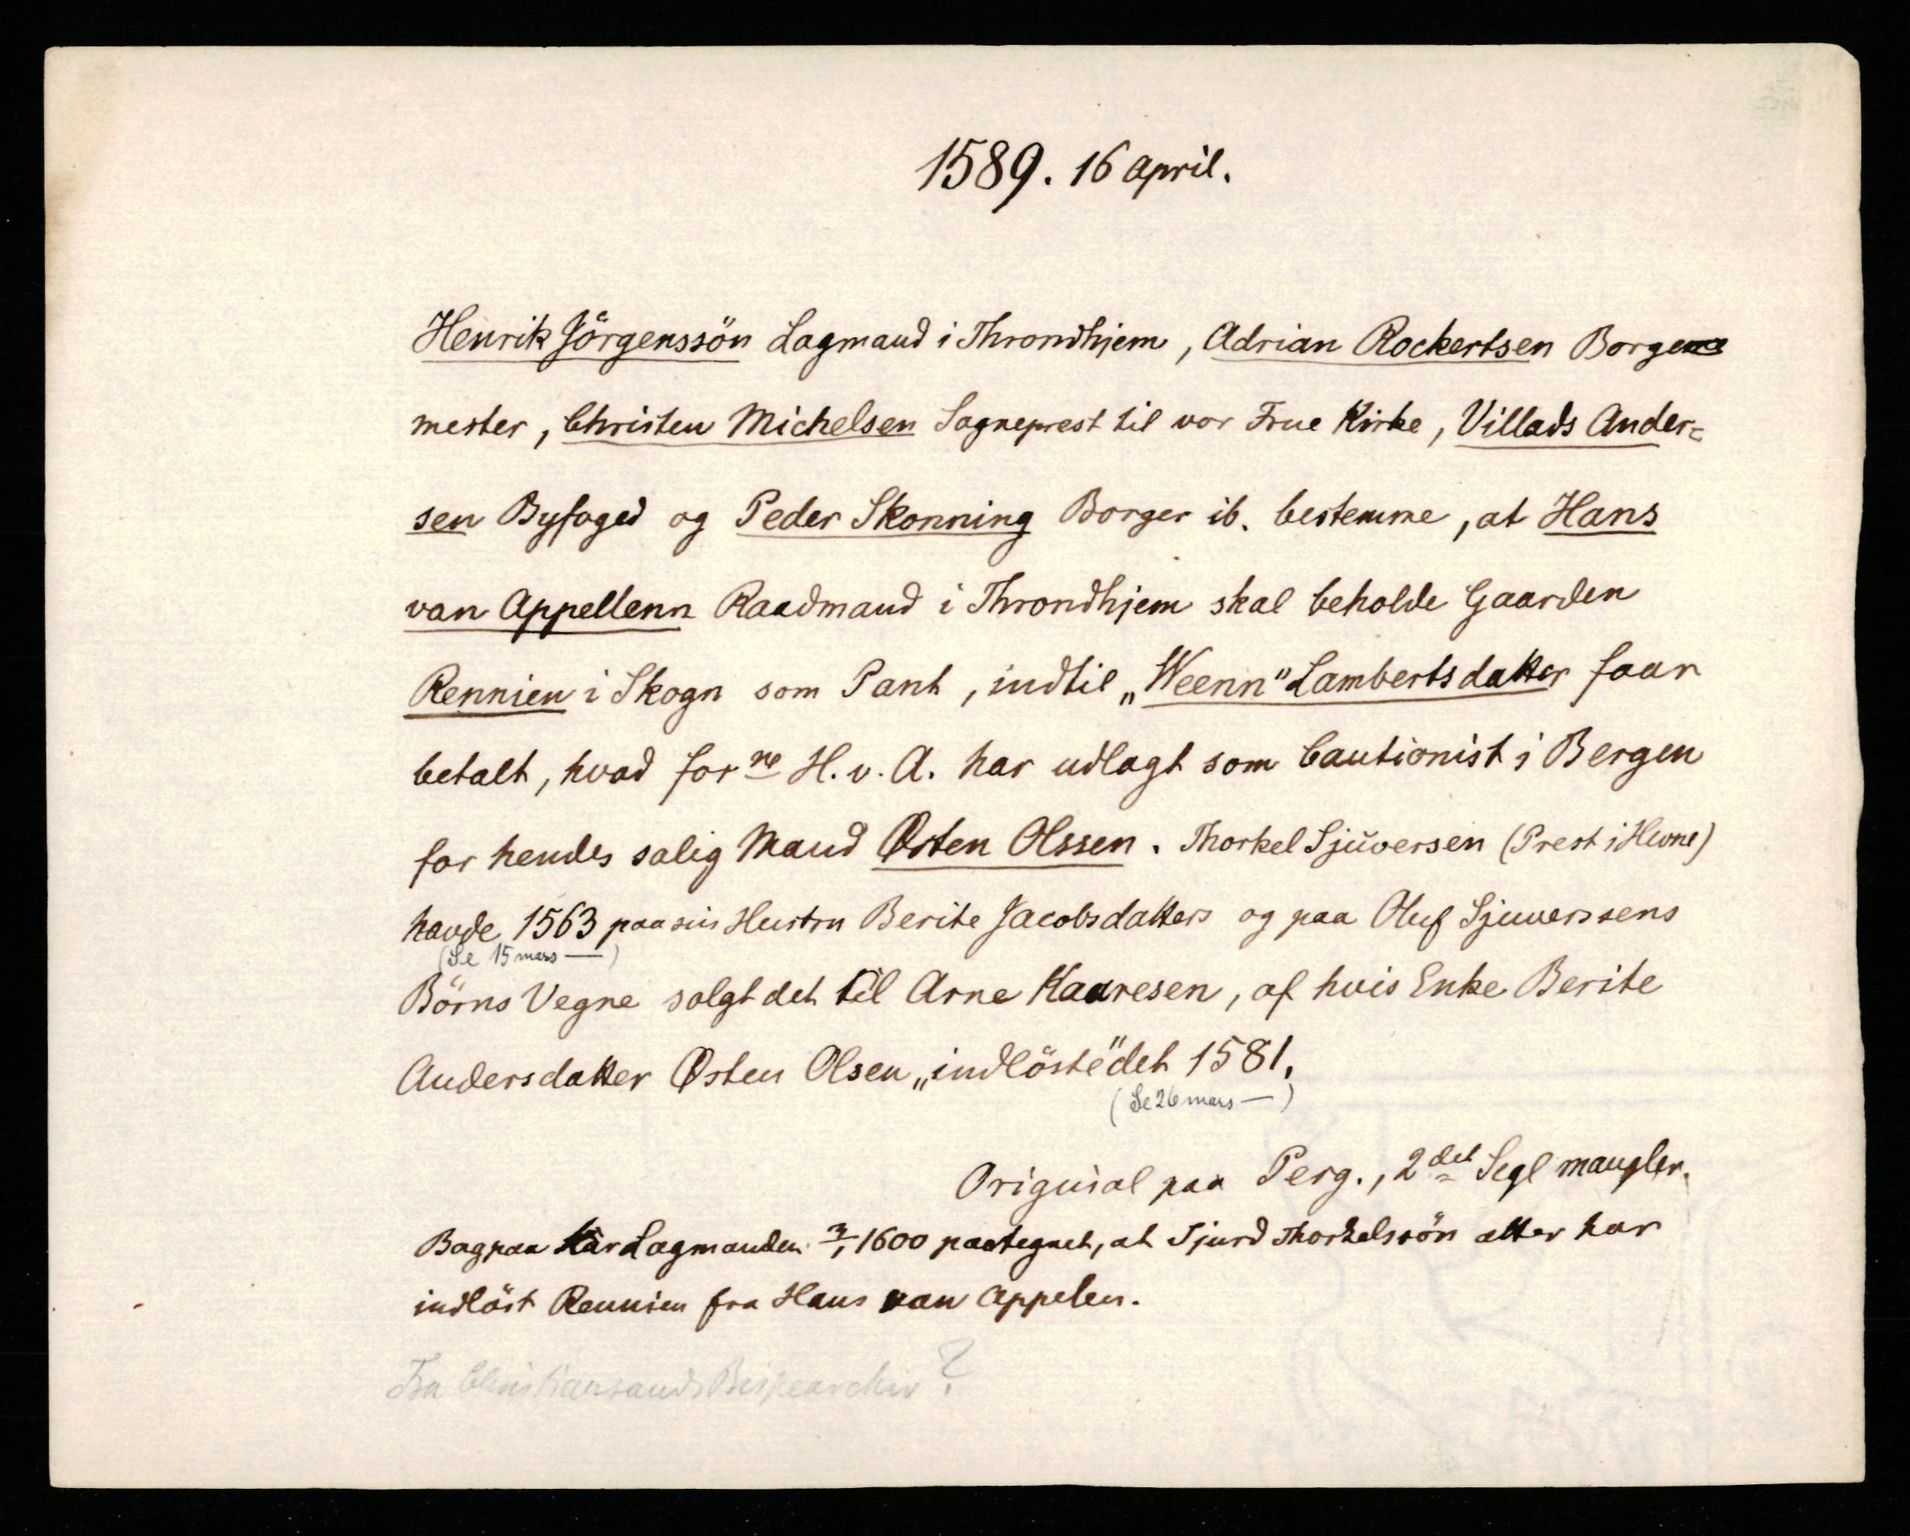 1589. 16 April.
Henrik Jörgenssön Lagmand i Throndhjem, Adrian Rockertsen Borge
mester, Christen Michelsen Sogneprest til vor Frue Kirke, Villads Ander=
sen Byfoged og Peder Skonning Borger ib. bestemme, at Hans
van Appellenn Raadmand i Throndhjem skal beholde Gaarden
Rennien i Skogn som Pant, indtil „Weenn" Lambertsdatter faar
betalt, hvad forne H. v. A. har udlagt som Cautionist i Bergen
for hendes salig Mand Østen Olssen. Thorkel Sjŭversen (Prest i Hevne)
havde 1563 paa sin Hustru Berite Jacobsdatters og paa Oluf Sjuverssens
(Se 15 mars —)
Börns Vegne solgt det til Arne Kaaresen, af hvis Enke Berite
Andersdatter Østen Olsen „indlöste" det 1581.
(Se 26 mars —)
Original paa Perg., 2det Segl mangler.
Bagpaa har Lagmanden 3/1 1600 paategnet, at Sjurd Thorkelssön atter har
indlöst Rennien fra Hans van Appelen.
Fra Christiansands Bispearchiv?